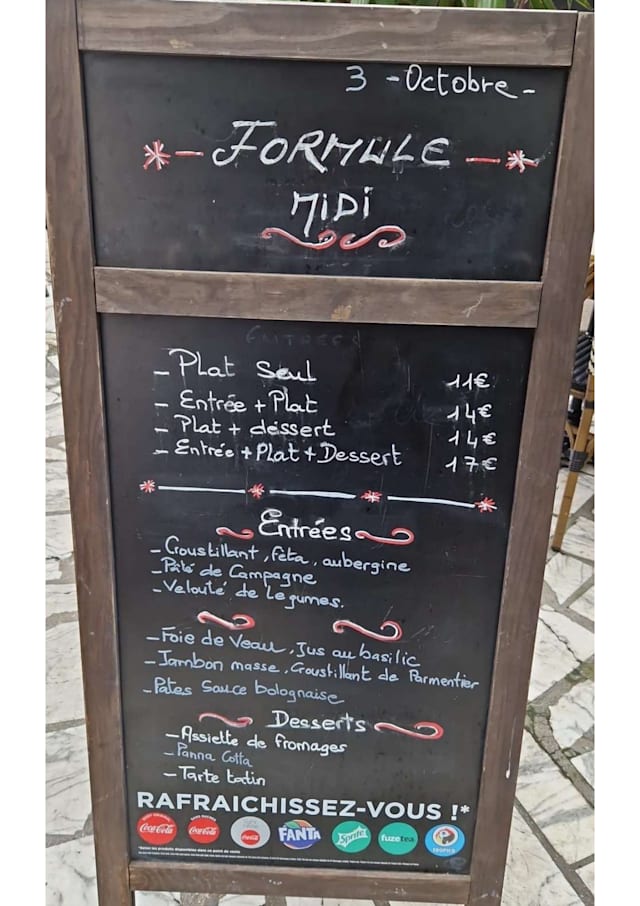 3 - Octobre -
- FORMULE -
MIDI
ENTREES
- Plat Seul 11€
- Entrée + Plat 14€
- Plat + dessert 14€
- Entrée + Plat + Dessert 17€
Entrées
- Croustillant, feta, aubergine
- Pâté de Campagne
- Velouté de Legumes.
- Foie de Veau, Jus au basilic
- Jambon masse, Croustillant de Parmentier
- Pâtes Sauce bolognaise
Desserts
- Assiette de fromages
- Panna Cotta
- Tarte tatin
RAFRAICHISSEZ-VOUS !*
Coca-Cola Coca-Cola Coca-Cola FANTA Sprite fuzetea TROPICO
*Selon les produits disponibles dans ce point de vente